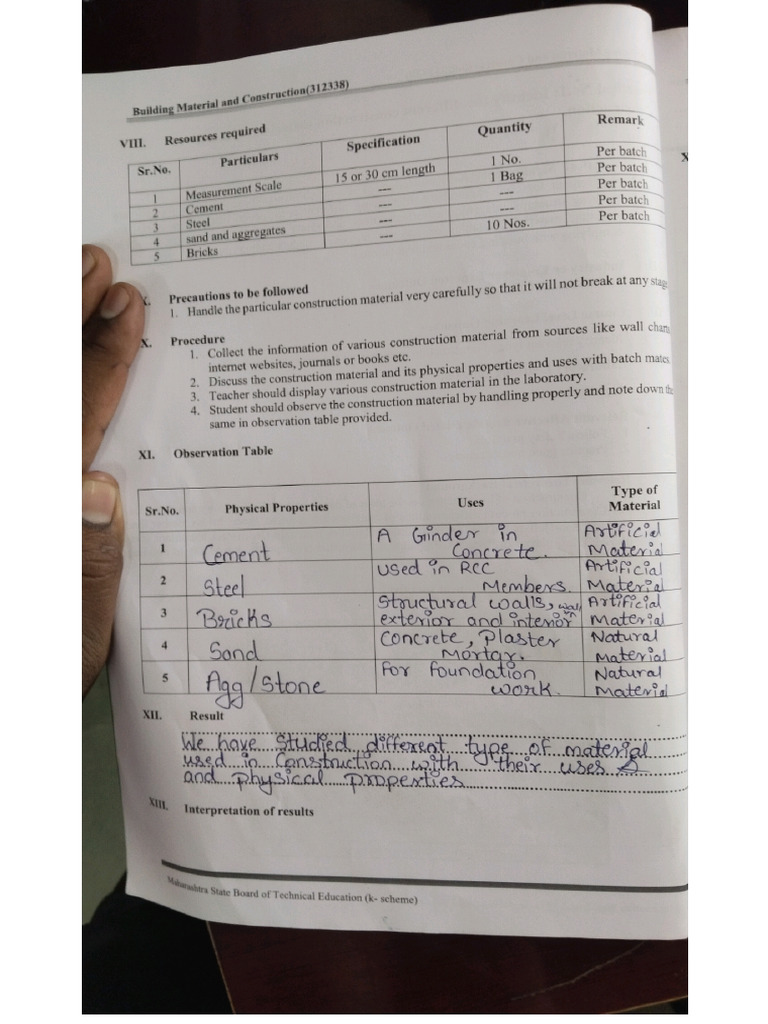 Building Material and Construction(312338)
VIII. Resources required
Sr.No. Particulars Specification Quantity Remark
1 Measurement Scale 15 or 30 cm length 1 No. Per batch
2 Cement --- 1 Bag Per batch
3 Steel --- --- Per batch
4 sand and aggregates --- --- Per batch
5 Bricks --- 10 Nos. Per batch
X. Precautions to be followed
1. Handle the particular construction material very carefully so that it will not break at any stage
X. Procedure
1. Collect the information of various construction material from sources like wall
internet websites, journals or books etc.
2. Discuss the construction material and its physical properties and uses with batch mates
3. Teacher should display various construction material in the laboratory.
4. Student should observe the construction material by handling properly and note down the
same in observation table provided.
XI. Observation Table
Sr.No. Physical Properties Uses Type of
Material
1 Cement A Ginder in Artificial
Concrete. Material
2 Steel used in RCC Artificial
Members. Material
3 Bricks Structural walls, Artificial
exterior and interior Material
4 Sand Concrete, Plaster Natural
Mortar. Material
5 Agg/Stone For foundation Natural
work. Material
XII. Result
We have Studied different type of material
used in Construction with their uses &
and physical properties
XIII. Interpretation of results
Maharashtra State Board of Technical Education (k- scheme)